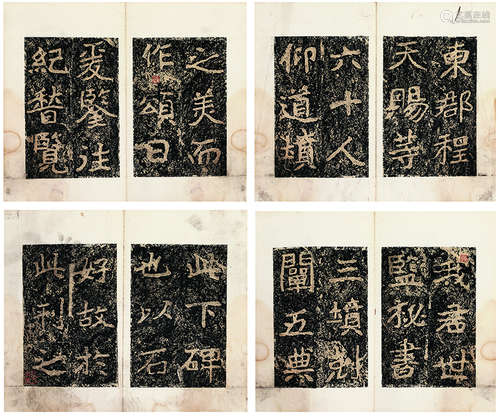 東郡程
天賜等
六十人
仰道墳
之美而
作頌曰
爰鑒往
紀替覽
我君世
監秘書
三墳剖
闡五典
此下碑
也以石
好故於
此刻之